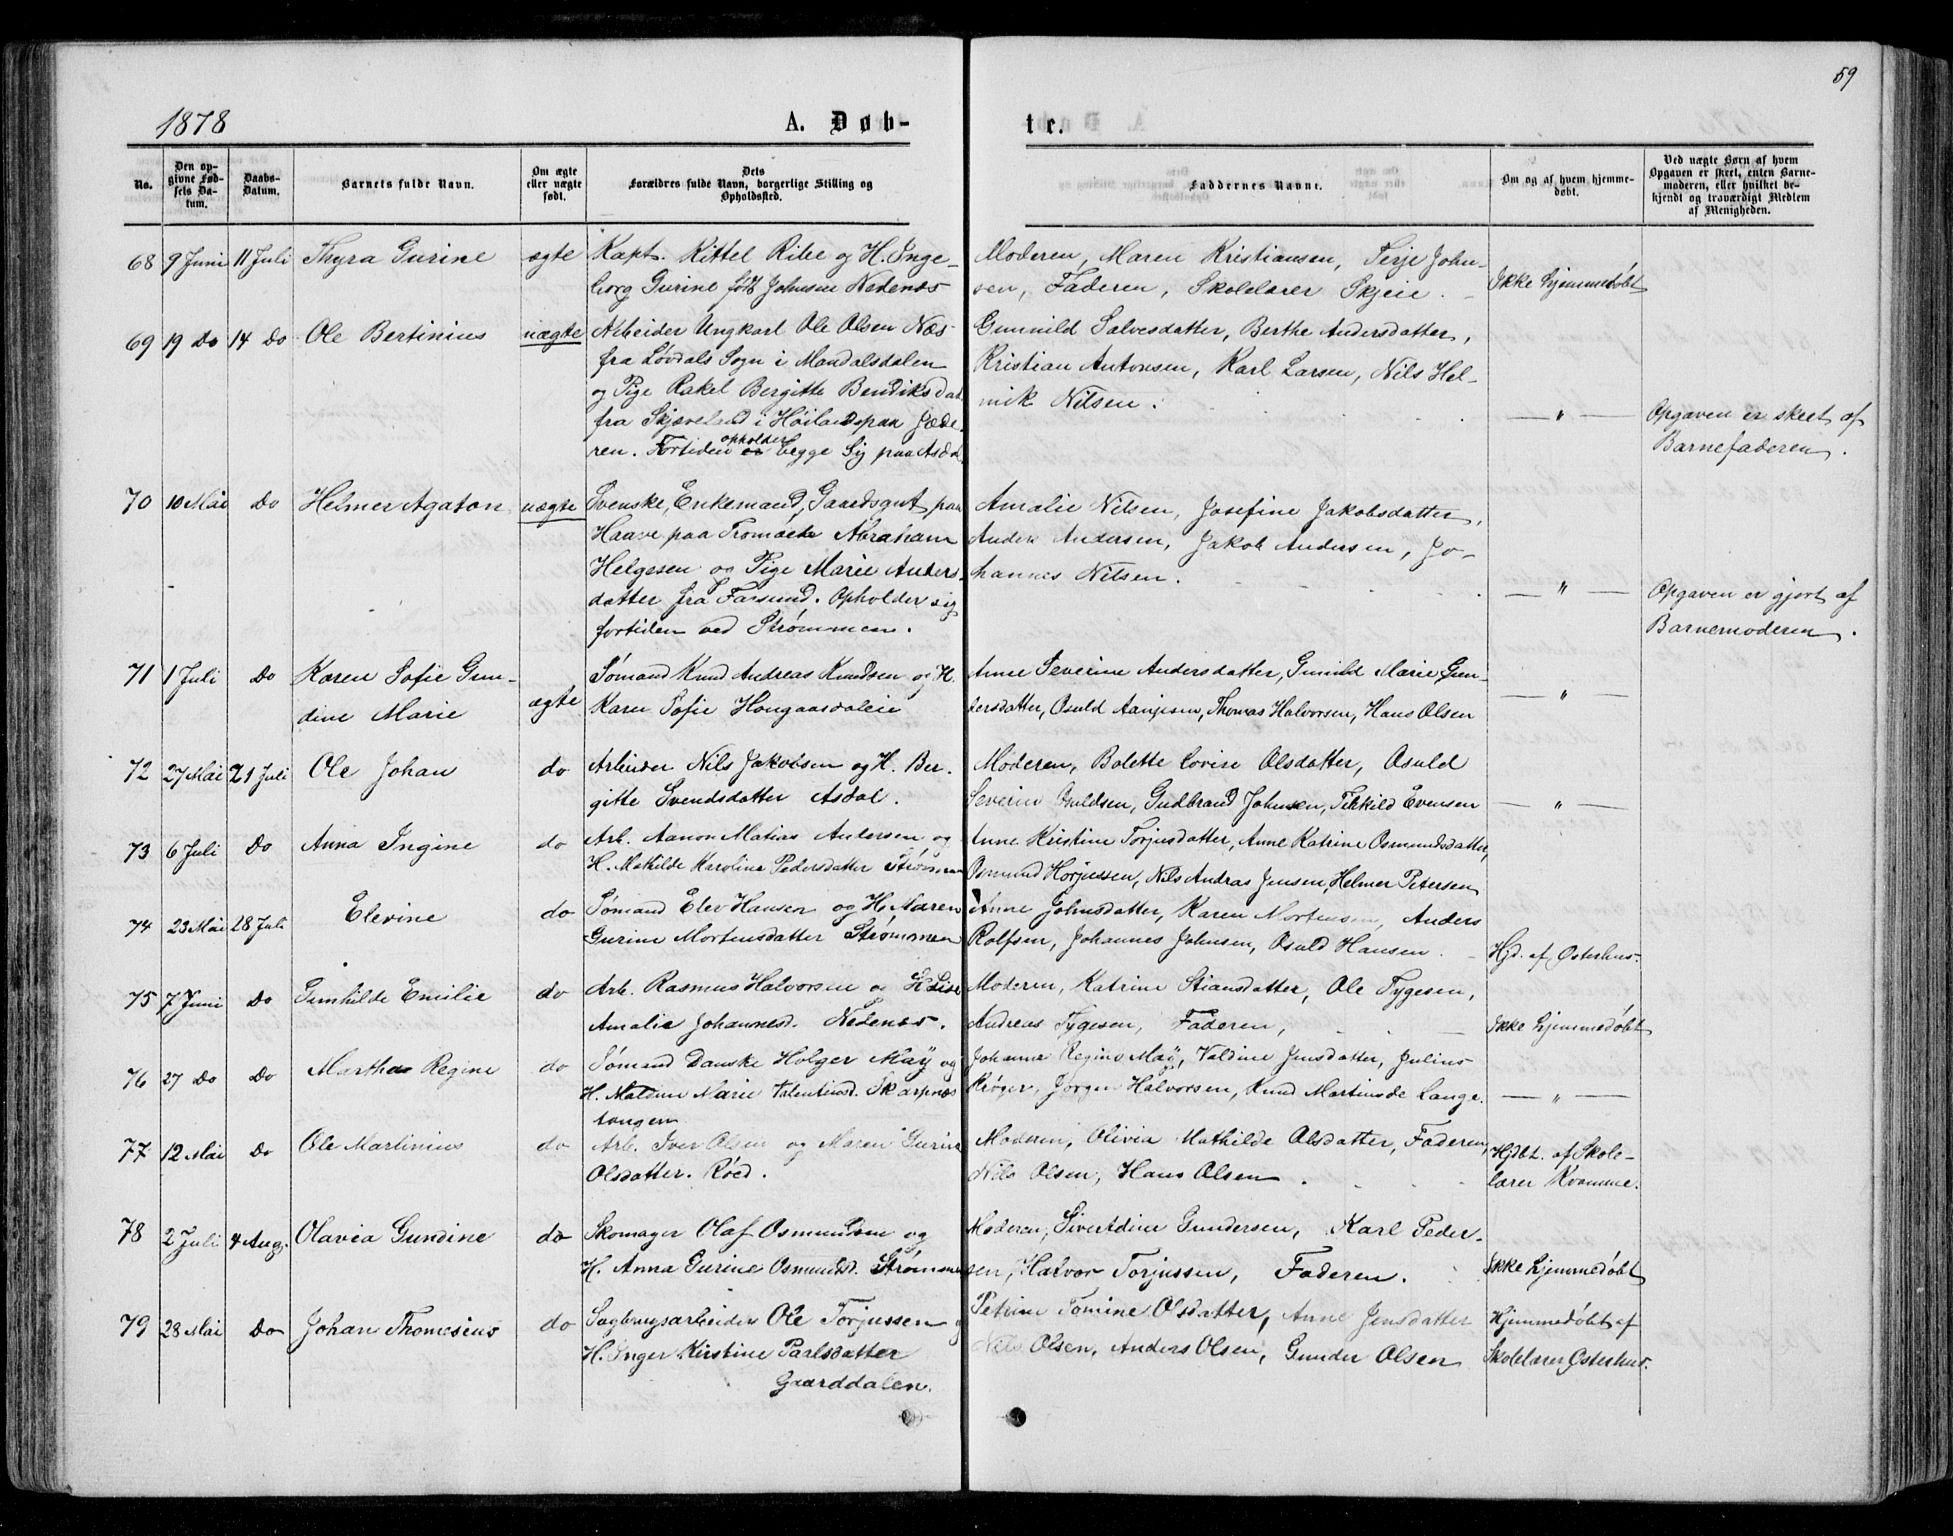 59
1878
A. Døb-
te.
No.
Den op-
givne Fød-
sels Da-
tum.
Daabs-
Datum.
Barnets fulde Navn.
Om ægte
eller uægte
født.
Dets
Forældres fulde Navn, borgerlige Stilling og
Opholdssted.
Faddernes Navne.
Om og af hvem hjemme-
døbt.
Ved uægte Børn af hvem
Opgaven er skeet, enten Barne-
moderen, eller hvilket be-
kjendt og troværdigt Medlem
af Menigheden.
68 9 Juni 11 Juli Thyra Gurine ægte Kapt. Kittel Ribe og H. Inge-
borg Gurine født Johnsen Nedenæs
Moderen, Maren Kristiansen, Terje John-
sen, Faderen, Skolelærer Skjeie.
Ikke hjemmedøbt
69 19 Do 14 Do Ole Bertinius uægte Arbeider Ungkarl Ole Olsen Næs
fra Løvdals Sogn i Mandalsdalen
og Pige Rakel Bergitte Bendiksdat
fra Skjæveland i Høiland paa Jæde-
ren. Fortiden opholder begge Sig paa Asdal
Gunnild Salvesdatter, Berthe Andersdatter,
Kristian Antonsen, Karl Larsen, Nils Hel-
mik Nilsen.
— " —
Opgaven er skeet af
Barnefaderen.
70 10 Mai Do Helmer Agaton uægte Svenske, Enkemand, Gaardsgut paa
Haave paa Tromøen Abraham
Helgesen og Pige Marie Anders-
datter fra Farsund. Opholder sig
fortiden ved Strømmen.
Amalie Nilsen, Josefine Jakobsdatter,
Anders Andersen, Jakob Andersen, Jo-
hannes Nilsen.
— " —
Opgaven er gjort af
Barnemoderen.
71 1 Juli Do Karen Sofie Gun-
dine Marie
ægte
Sømand Knud Andreas Knudsen og H.
Karen Sofie Hougaasdaleie
Anne Severine Andersdatter, Gunild Marie Gun-
dersdatter, Osuld Aanjesen, Thomas Halvorsen, Hans Olsen
— " —
72 27 Mai 21 Juli Ole Johan do Arbeider Nils Jakobsen og H. Ber-
gitte Svendsdatter Asdal.
Moderen, Bolette Lovise Olsdatter, Osuld
Severin Osuldsen, Gudbrand Johnsen, Tellkild Evensen
— " —
73 6 Juli Do Anna Ingine do Arb. Aanon Matias Andersen og
H. Mathilde Karoline Pedersdatter Strømmen
Anne Kristine Torjusdatter, Anne Katrine Osmundsdatter,
Osmund Horjussen, Nils Andras Jensen, Helmer Petersen
74 23 Mai 28 Juli Elevine do Sømand Elev Hansen og H. Maren
Gurine Mortensdatter Strømmen
Anne Johnsdatter, Karen Mortensen, Anders
Rolfsen, Johannes Johnsen, Osuld Hansen.
Hjd. af Østerhus.
75 7 Juni Do Gunhilde Emilie do Arb. Rasmus Halvorsen og H. Lise
Amalie Johannesd. Nedenæs.
Moderen, Katrine Stiansdatter, Ole Tygesen,
Andreas Tygesen, Faderen,
Ikke hjemmedøbt
76 27 Do Do Martha Regine do Sømand Danske Holger May og
H. Maldine Marie Valentinsd. Skarpnæs
tangen
Johanne Regine May, Valdine Jensdatter, Julius
Krøger, Jørgen Halvorsen, Knud Martinsde Lange.
— " —
77 12 Mai Do Ole Martinius do Arb. Iver Olsen og Maren Gurine
Olsdatter. Røed.
Moderen, Olivia Mathilde Olsdatter, Faderen,
Nils Olsen, Hans Olsen.
Hjdbt. af Skole-
lærer Kvamme.
78 2 Juli 4 Aug. Olavia Gundine do Skomager Olaf Osmundsen og
H. Anna Gurine Osmundsd. Strømmen
Moderen, Sivertdine Gundersen, Karl Peder-
sen, Halvor Torjussen, Faderen.
Ikke hjemmedøbt
79 28 Mai Do Johan Thomesius do Sagbrugsarbeider Ole Torjussen og
H. Inger Kirstine Parlsdatter
Gaarddalen.
Petrine Tomine Olsdatter, Anne Jensdatter
Nils Olsen, Anders Olsen, Gunder Olsen
Hjemmedøbt af
Skolelærer Østerhus.